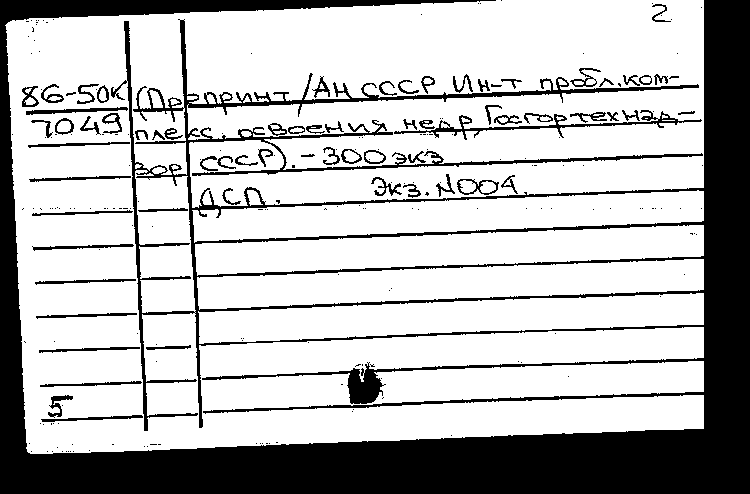 2
86-50к (Препринт/АН СССР, Ин-т пробл. ком-
7049 плекс. освоения недр, Госгортехнад-
зор СССР). - 300 экз.
ДСП. Экз. N004.
5